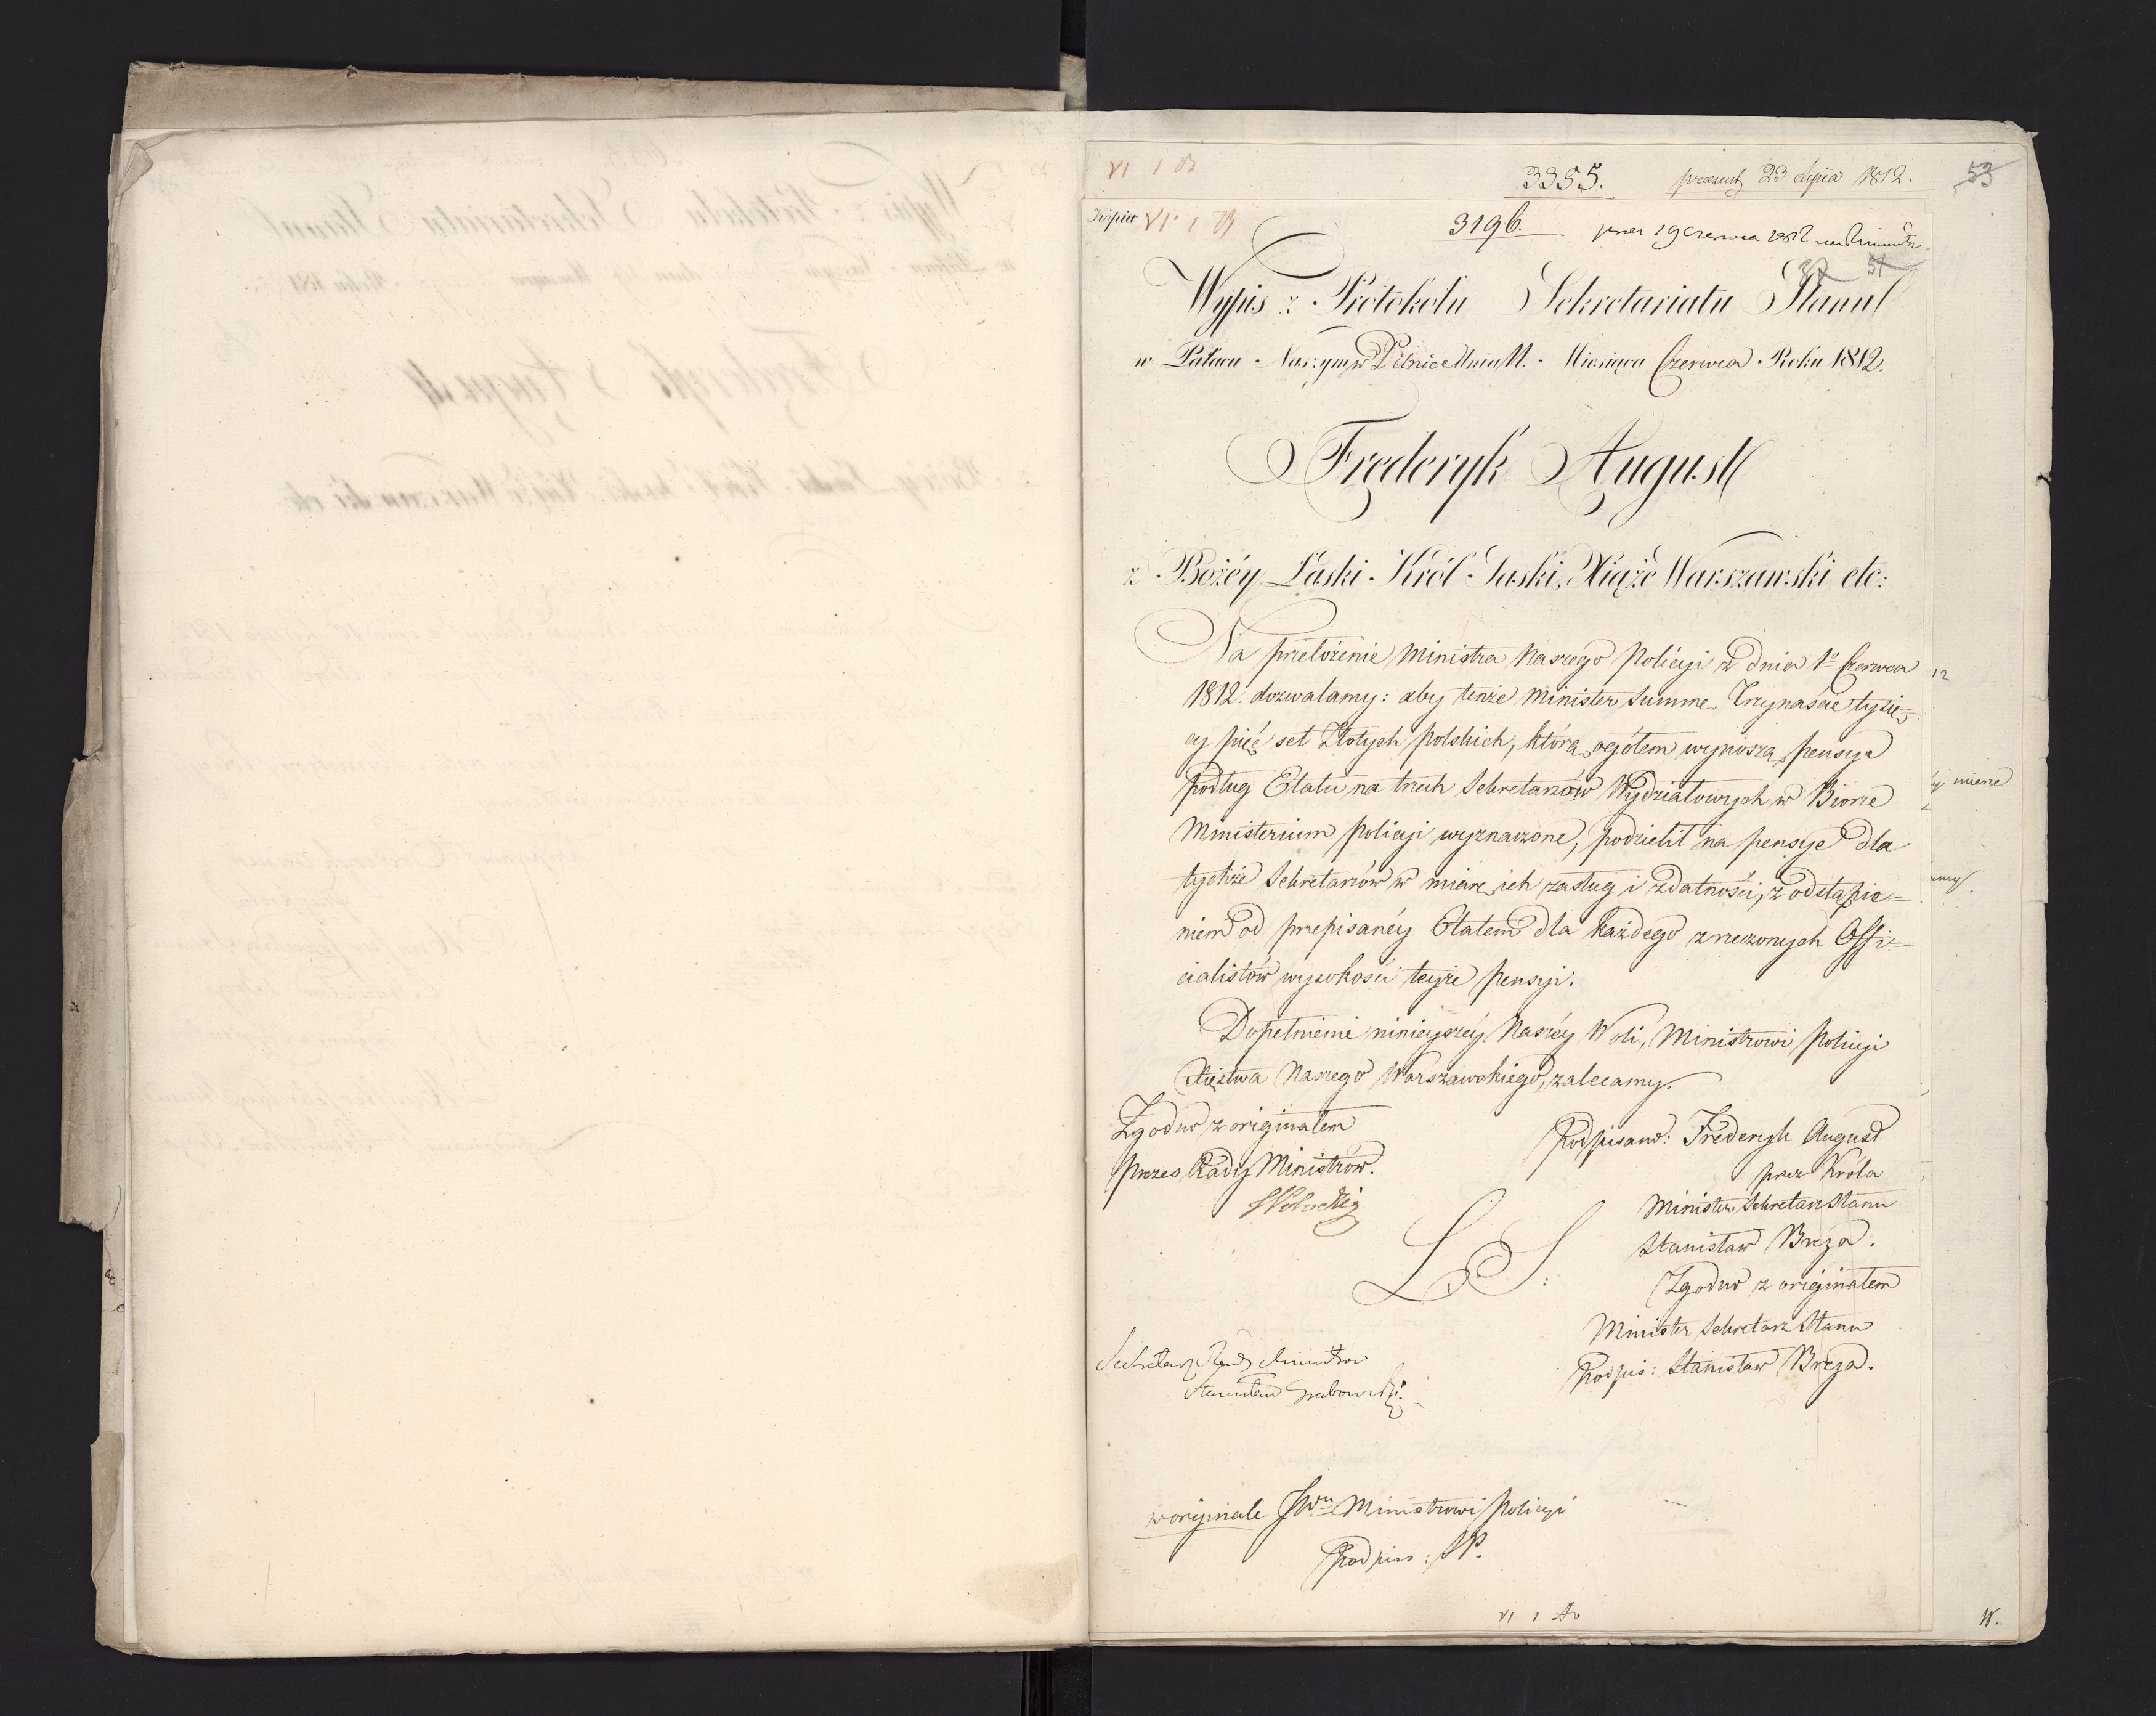 VI 1 B
3355. praesent 23 Lipca 1812. 53
Kopia VI 1 B
3196. praes 19 Czerwca 1812
37 54
Wypis z Protokołu Sekretariatu Stanu
w Pałacu Naszym w Pilnic dnia 11. Miesiąca Czerwca Roku 1812.
Frederyk August
z Bożéy Łaski Król Saski, Xiąże Warszawski etc:
Na przełożenie Ministra Naszego Policyi z dnia 1o Czerwca
1812. dozwalamy: aby tenże Minister Summę Trzynaście tysię-
cy pięć set Złotych polskich, którą ogółem wynoszą pensye
podług Etatu na trzech Sekretarzów Wydziałowych w Biorze
Ministerium Policyi wyznaczone, podzielił na pensye dla
tychże Sekretarzów w miarę ich zasług i zdatności, z odstąpie=
niem od przepisanéy Etatem dla każdego z rzeczonych Offi=
cialistów wysokości teyże pensyi.
Dopełnienie ninieyszéy Naszéy Woli, Ministrowi Policyi
Xięstwa Naszego Warszawskiego, zalecamy.
Zgodno z originałem
Prezes Rady Ministrów.
Podpisano: Frederyk August
przez Króla
Minister Sekretarz Stanu
Stanisław Breza.
L. S:
Zgodno z originałem
Minister Sekretarz Stanu
Podpis: Stanisław Breza.
Sekretarz Rady Ministrów
Stanisław Grabowski
w originale JWu Ministrowi Policyi
Podpis: SP.
VI 1 Ao
12
mierze